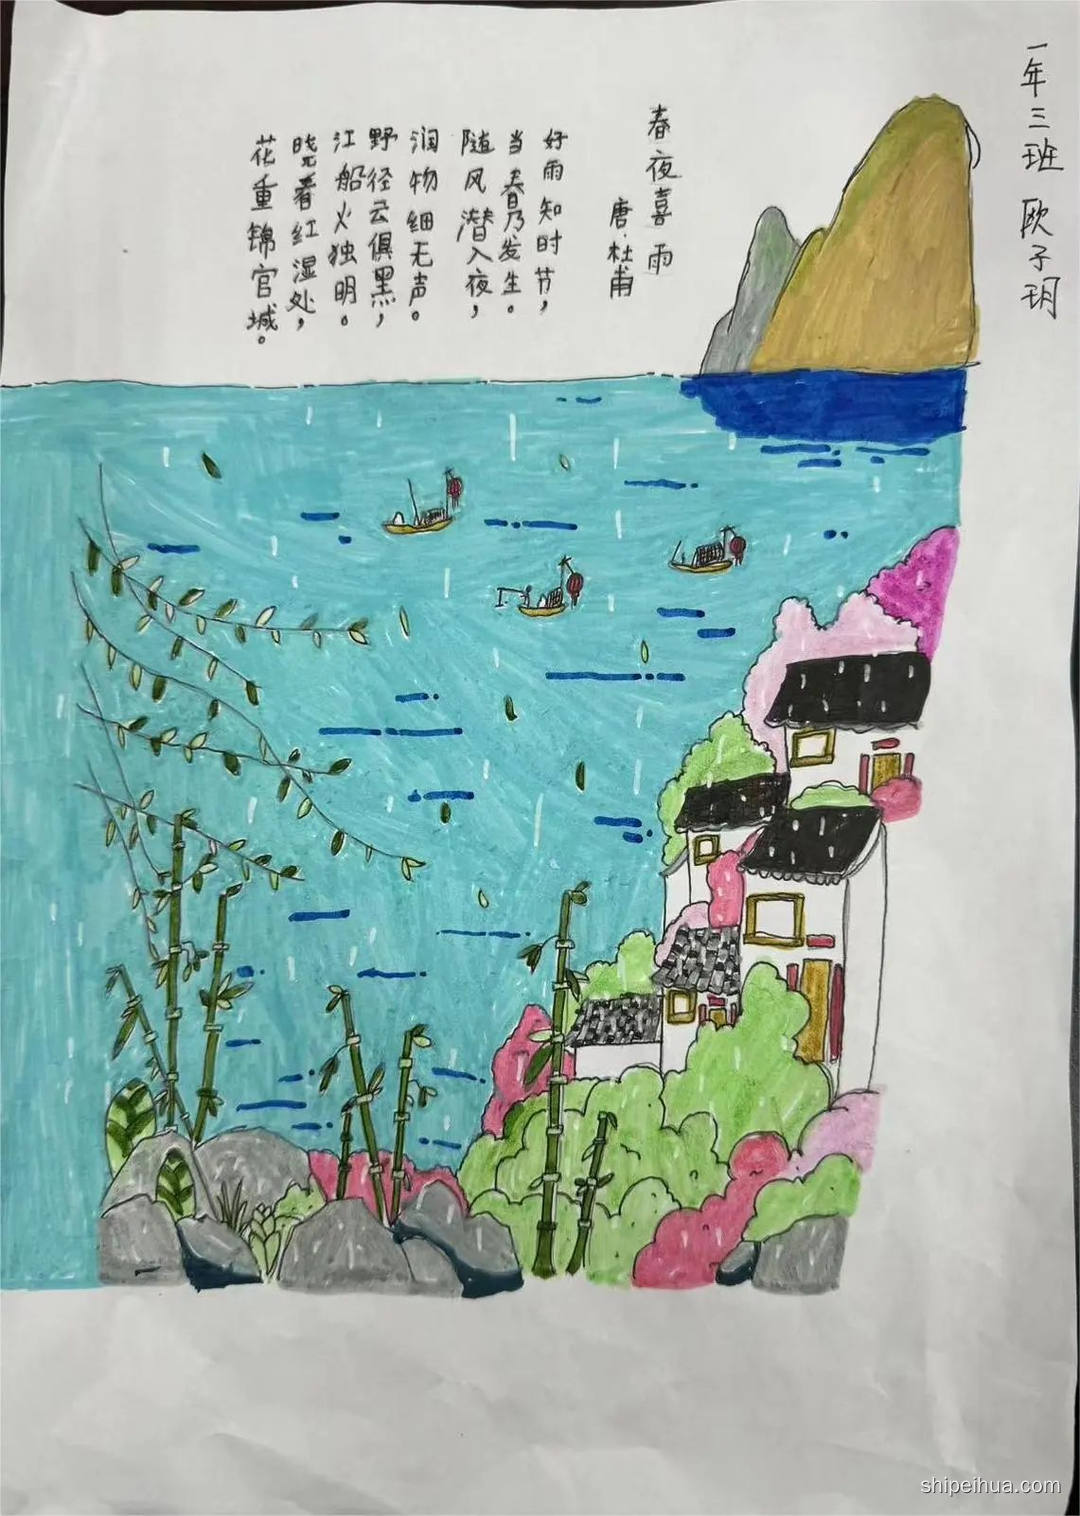 一年三班 欧子玥
春夜喜雨
唐·杜甫
好雨知时节，
当春乃发生。
随风潜入夜，
润物细无声。
野径云俱黑，
江船火独明。
晓看红湿处，
花重锦官城。
shipeihua.com